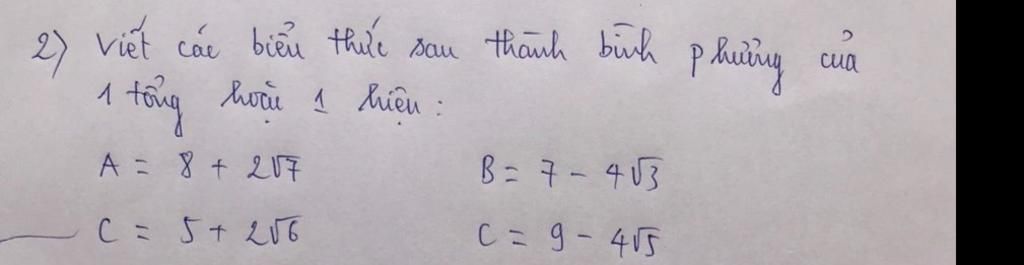 2) Viết các biểu thức sau thành bình phương của
1 tổng hoặc 1 hiệu :
A = 8 + 2√7 B = 7 - 4√3
C = 5 + 2√6 C = 9 - 4√5